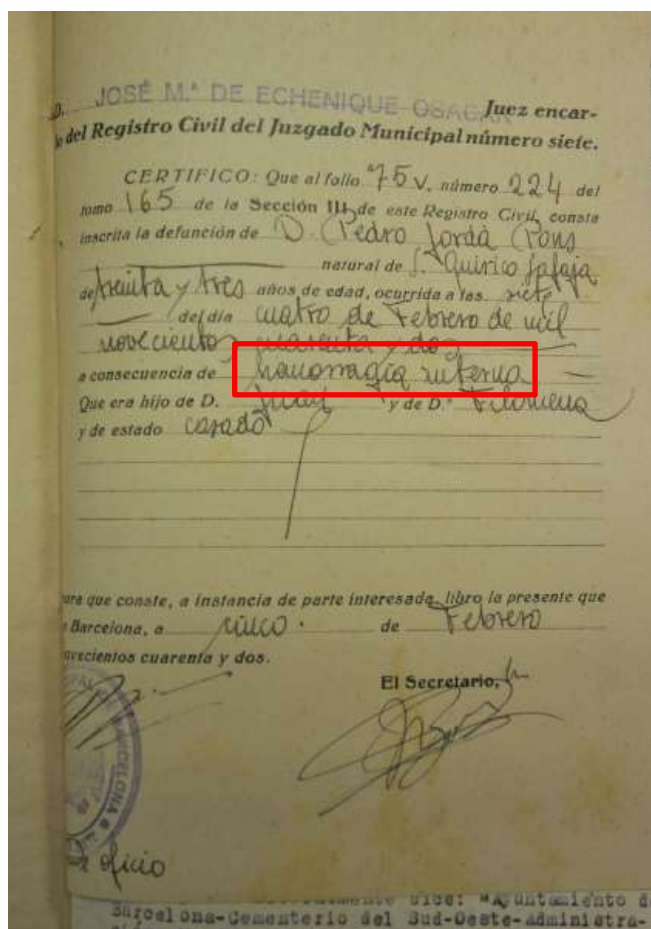 D. JOSÉ M.ª DE ECHENIQUE OSACAR Juez encar-
o del Registro Civil del Juzgado Municipal número siete.
CERTIFICO: Que al folio 75 v. número 224 del
tomo 165 de la Sección III de este Registro Civil, consta
inscrita la defunción de D. Pedro Jordà Pons
natural de S. Quirico Safaja
de treinta y tres años de edad, ocurrida a las siete
del día cuatro de Febrero de mil
novecientos cuarenta y dos
a consecuencia de hemorragia interna
Que era hijo de D. Juan y de D.ª Filomena
y de estado casado
para que conste, a instancia de parte interesada, libro la presente que
Barcelona, a cinco de Febrero
ovecientos cuarenta y dos.
El Secretario,
BARCELONA
De oficio
dice: "Ayuntamiento d
Barcelona-Cementerio del Sud-Oeste-Administra-